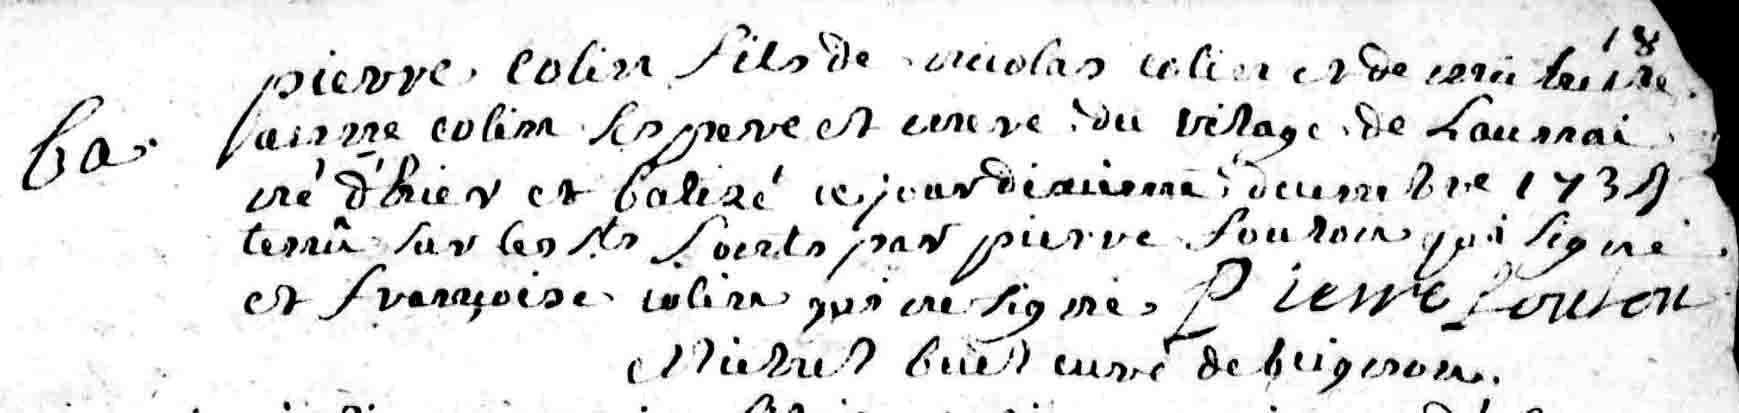 18
pierre colin fils de nicolas colin et de
ba. anne colin ses pere et mere du vilage de Launai
né d'hier et batizé ce jour dixieme decembre 173
tenû sur les sts fonts par pierre Foulon qui signe
et françoise colin qui ne signe. Pierre Foulon
Michel buet curé de